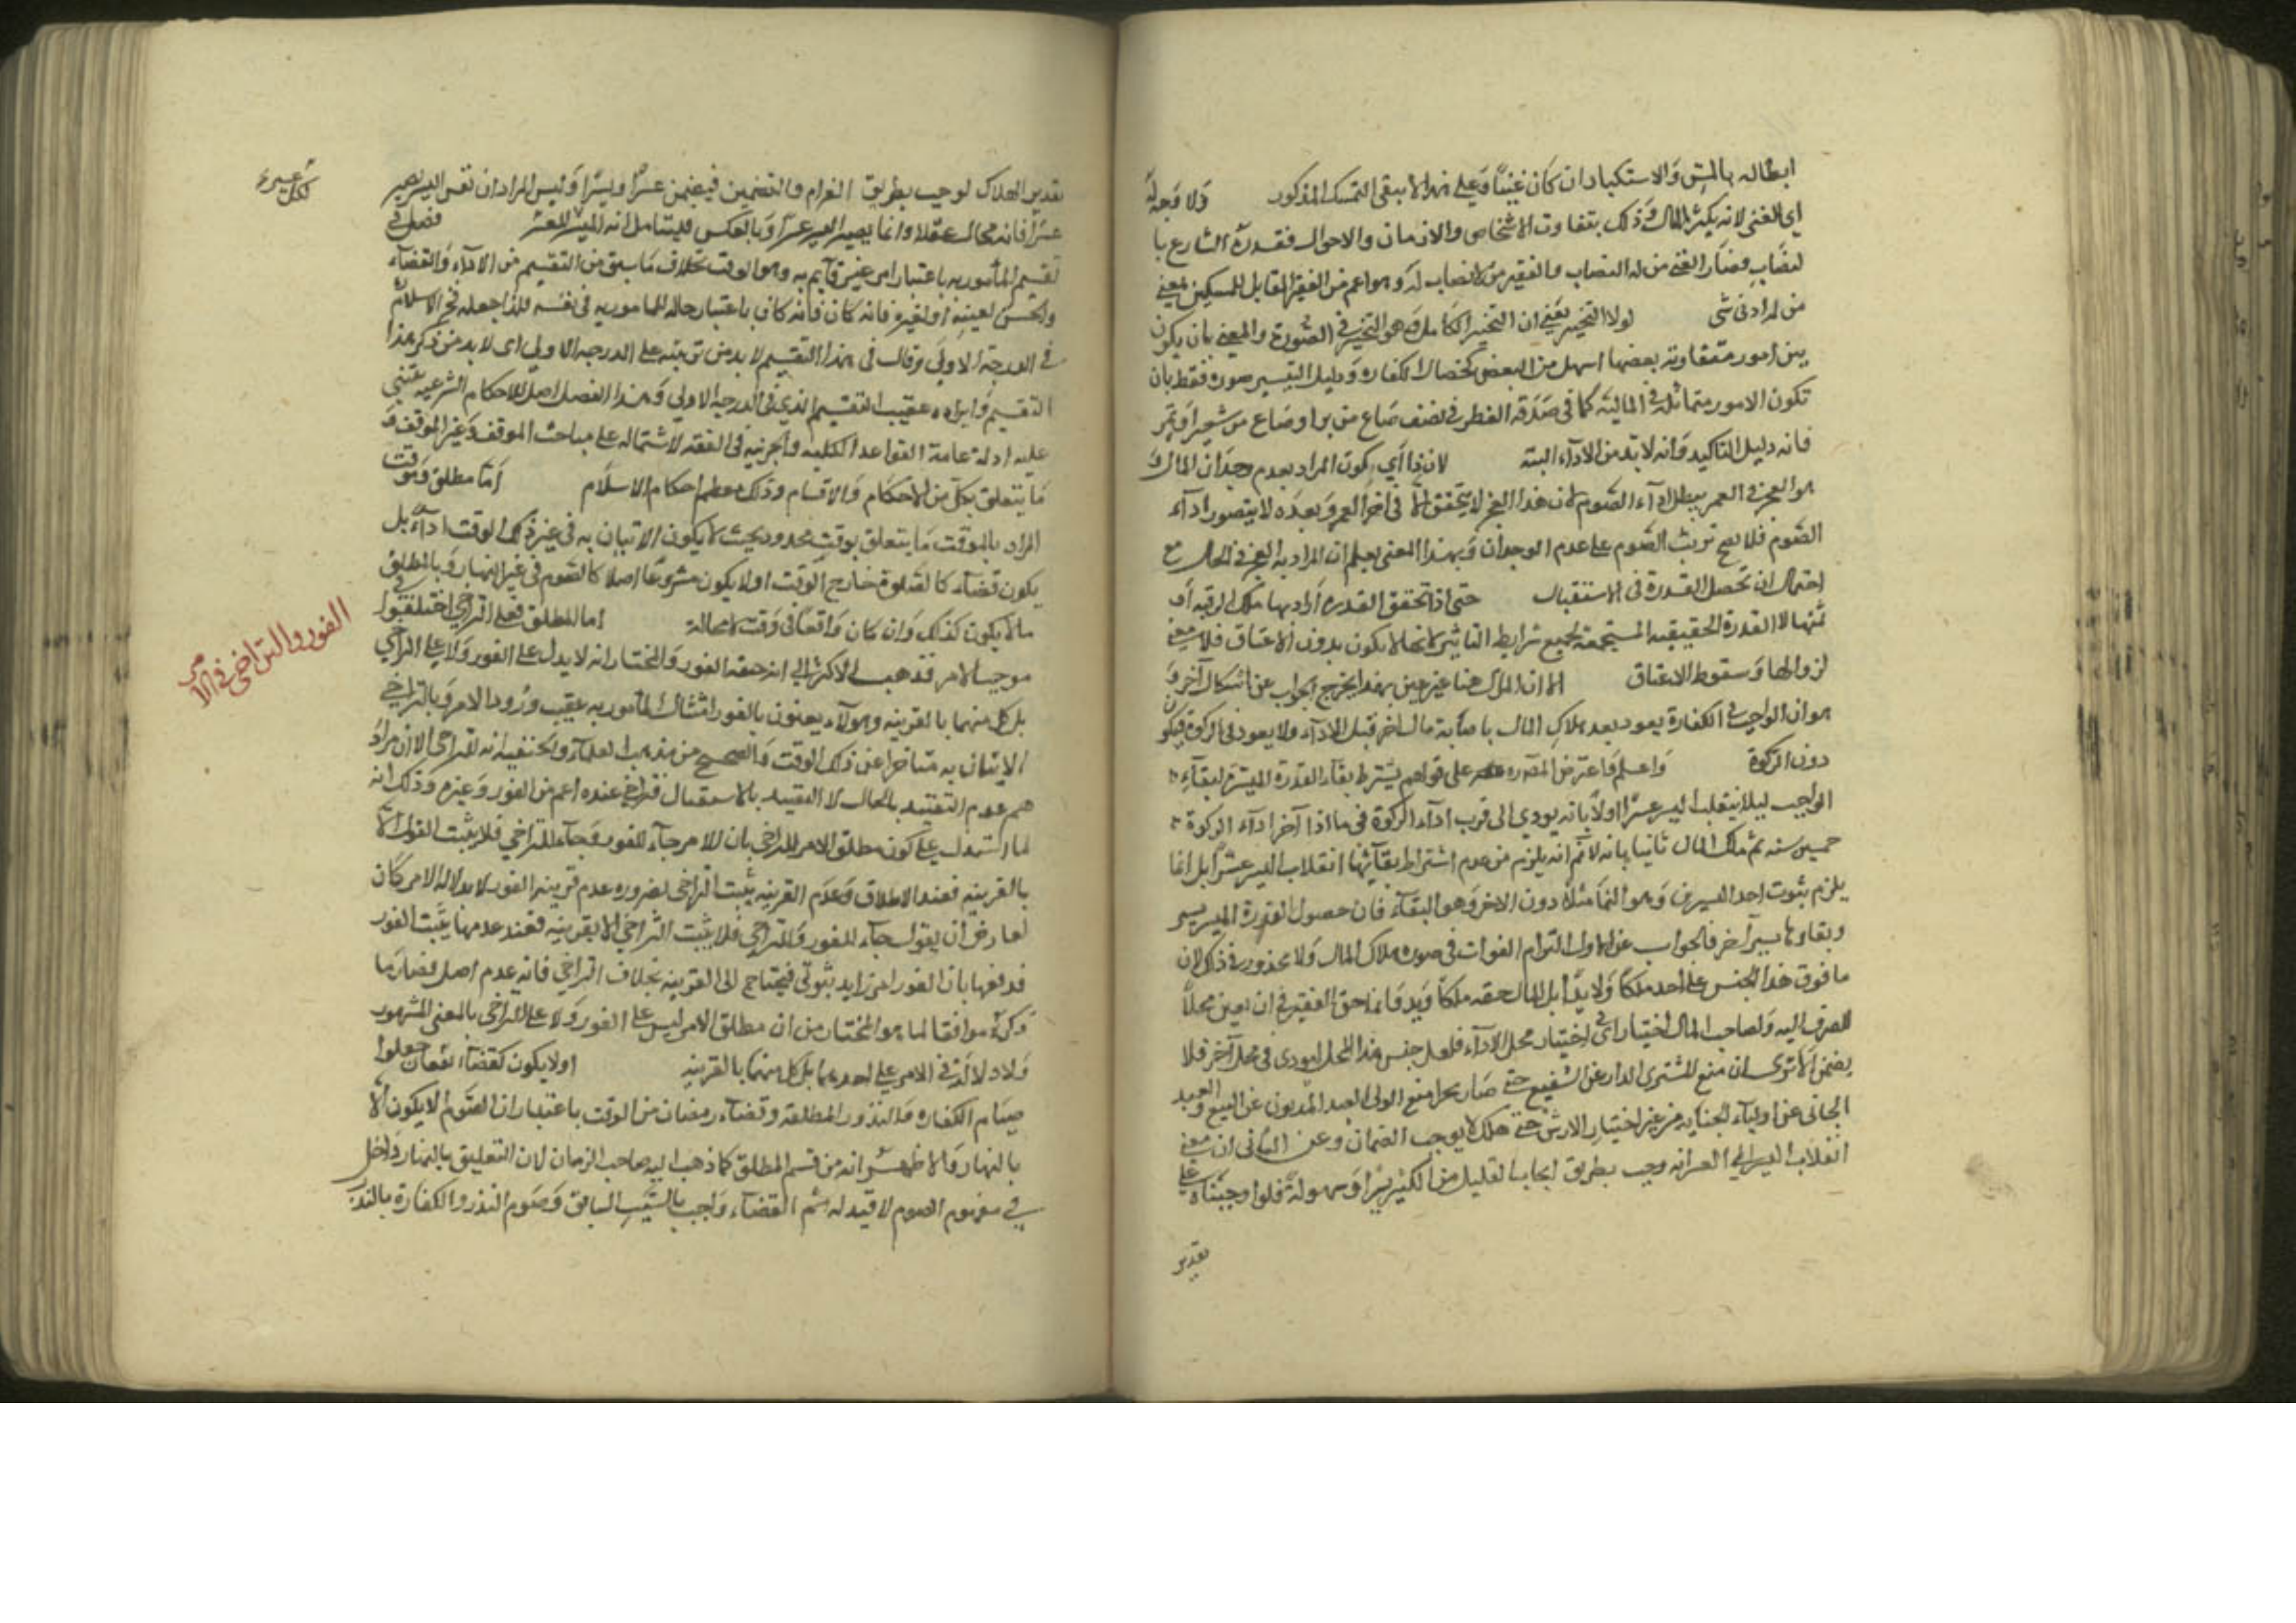 ابطاله بالمن والاستكبار ان كان غنيا وعلى هذا لا يبقى التمسك المذكور ولا وجه له
اي الغنى لانه يكثر المال وذلك بتفاوت الاشخاص والازمان والاحوال فقدره الشارع با
لنصاب فصار الغنى من له النصاب والفقير من لا نصاب له وهو اعم من الفقير المقابل للمسكين بمعنى
من له ادنى شي لولا التخيير يعني ان التخيير الكامل وهو التخيير في الصورة والمعنى بان يكون
بين امور متفاوته بعضها اسهل من البعض كخصال الكفاره دليل التيسير صوره فقط بان
تكون الامور متماثلة في المالية كما في صدقه الفطر في نصف صاع من بر او صاع من شعير او تمر
فانه دليل التاكيد وانه لا بد من الادآء البتة لان ذا اي كون المراد بعدم وجدان المال و
هو العجز في العمر يبطل ادآء الصوم لان هذا العجز لا يتحقق الا في اخر العمر وبعده لا يتصور ادآء
الصوم فلا يصح ترتب الصوم على عدم الوجدان وبهذا المعنى يعلم ان المراد به العجز في الحال مع
احتمال ان تحصل القدرة في الاستقبال حتى اذا تحقق القدره اراد بها ملك الرقبه او
ثمنها لا القدرة الحقيقيه المستجمعة لجميع شرايط التاثير لانها لا يكون بدون الاعتاق فلا معنى
لزوالها وسقوط الاعتاق الا ان المال هنا غير عين بهذا يخرج الجواب عن اشكال آخر و
هو ان الواجب في الكفارة يعود بعد هلاك المال باصابة مال اخر قبل الادآء ولا يعود في الزكوة فيكون
دون الزكوة واعلم واعترض المص ره على قولهم يشترط بقاء القدرة الميسرة لبقآء
الواجب ليلا ينقلب اليسر عسرا اولا بانه يودي الى قرب ادآء الزكوة في ما اذا آخر ادآء الزكوة
خمسين سنه ثم هلك المال ثانيا بانه لا نم انه يلزم من عدم اشتراط بقآئها انقلاب اليسر عسرا بل انما
يلزم ثبوت احد اليسرين وهو النما مثلا دون الاخر وهو البقآء فان حصول القدرة الميسرة يسر
وبقاوها يسر آخر فالجواب عن الاول التوام الفوات في صورة هلاك المال ولا محذور في ذلك لان
ما فوق هذا الجنس على احد ملكا ولا يدا بل المال حقه ملكا ويدا وانما حق الفقير في ان يعين محلا
للصرف اليه ولصاحب المال اختيار اي في اختيار محل الادآء فلعل حبس هذا المحل ليودى في محل آخر فلا
يضمن الا ترى ان منع المشتري الدار عن الشفيع حتى صار بحرا ومنع المولى العبد المديون عن البيع والعبد
الجاني عن اولياء الجنايه من غير اختيار الارش حتى هلك لا يوجب الضمان وعن الثاني ان معنى
انقلاب اليسر الى العسر انه وجب بطريق ايجاب القليل من الكثير يسرا وسهولة فلو اوجبناه على
تقدير
تقدير الهلاك لوجب بطريق الغرام والتضمين فيتضمن عسرا وليس المراد ان نفس اليسر يصير
عسرا فانه محال عقلا وانما يصير اليسر عسرا وبالعكس فليتامل انه الميسر للعسر فصل في
تقسيم المأمور به باعتبار امر غير قآيم به وهو الوقت بخلاف ما سبق من التقسيم من الادآء والقضآء
والحسن لعينه او لغيره فانه كان باعتبار حالة المامور به في نفسه فلذا جعله فخر الاسلام
في الدرجة الاولى وقال في هذا التقسيم لا بد من ترتيبه على الدرجه الاولى اي لا بد من ذكر هذا
التقسيم وايراده عقيب التقسيم الذي في الدرجه الاولى وهذا الفصل اصل للاحكام الشرعيه يبتني
عليه ادلة عامة القواعد الكليه والجزئيه في الفقه لاشتماله على مباحث الموقت وغير الموقت و
ما يتعلق بكل من الاحكام والاقسام وذلك معظم احكام الاسلام اما مطلق وموقت
المراد بالموقت ما يتعلق بوقت محدود بحيث لا يكون الاتيان به في غير ذلك الوقت ادآء بل
يكون قضآء كالصلوة خارج الوقت او لا يكون مشروعا اصلا كالصوم في غير النهار وبالمطلق
ما لا يكون كذلك وان كان واقعا في وقت لا محالة اما المطلق فعلى التراخي اختلفوا في
موجب الامر فذهب الاكثر الى ان حقه الفور والمختار انه لا يدل على الفور ولا على التراخي
بل كل منهما بالقرينه وهولآء يعنون بالفور امتثال المأمور به عقيب ورود الامر وبالتراخي
الاتيان به متاخرا عن ذلك الوقت والصحيح من مذهب العلمآء الحنفيه انه للتراخي الا ان مراد
هم عدم التقييد بالحال لا التقييد بالاستقبال فتراخي عنده اعم من الفور وغيره وذلك انه
لما استدل على كون مطلق الامر للتراخي بان الامر جآء للفور وجآء للتراخي فلا يثبت الفور الا
بالقرينه فعند الاطلاق وعدم القرينه يثبت التراخي لضروره عدم قرينه الفور لا بدلالة الامر كان
لعارض ان يقول جآء للفور وللتراخي فلا يثبت التراخي الا بقرينه فعند عدمها يثبت الفور
فدفعها بان الفور امر زايد ثبوتي فيحتاج الى القرينه بخلاف التراخي فانه عدم اصلي فصار ما
ذكره موافقا لما هو المختار من ان مطلق الامر ليس على الفور ولا على التراخي بالمعنى المشهور
ولا دلالة في الامر على احدهما بل كل منهما بالقرينه او لا يكون كقضآء رمضان جعلوا
صيام الكفاره والنذور المطلقه وقضآء رمضان من الوقت باعتبار ان الصوم لا يكون الا
بالنهار والاظهر انه من قسم المطلق كما ذهب اليه صاحب الزمان لان التعليق بالنهار داخل
في مفهوم الصوم لا قيد له ثم القضآء واجب بالسبب السابق وصوم النذر والكفارة بالنذر
الفور والتراخي في الامر